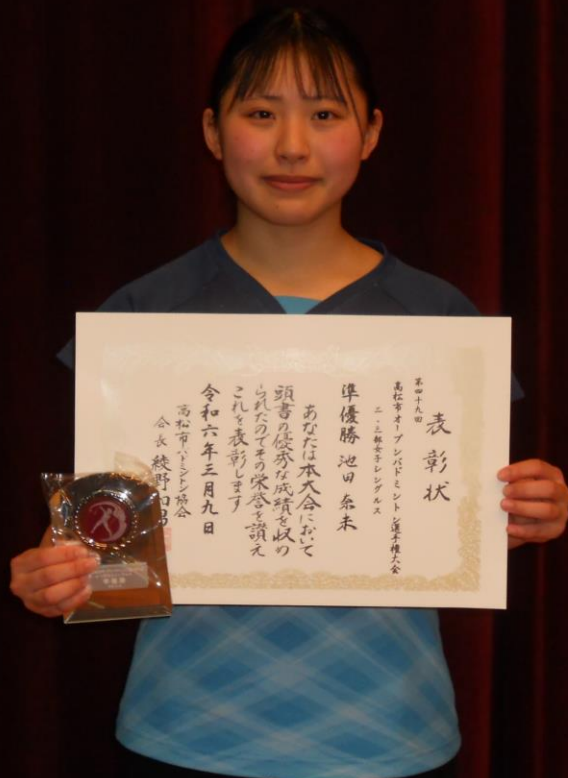 表彰状
第四十九回
高松市オープンバドミントン選手権大会
二・三部女子シングルス
準優勝 池田 奈未
あなたは本大会において
頭書の優秀な成績を収め
られたのでその栄誉を讃え
これを表彰します
令和六年三月九日
高松市バドミントン協会
会長 綾野和男